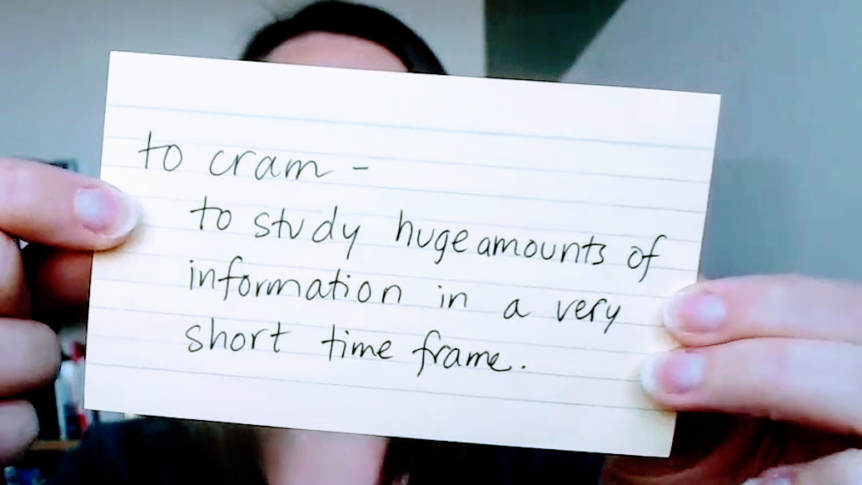 to cram -
to study huge amounts of
information in a very
short time frame.